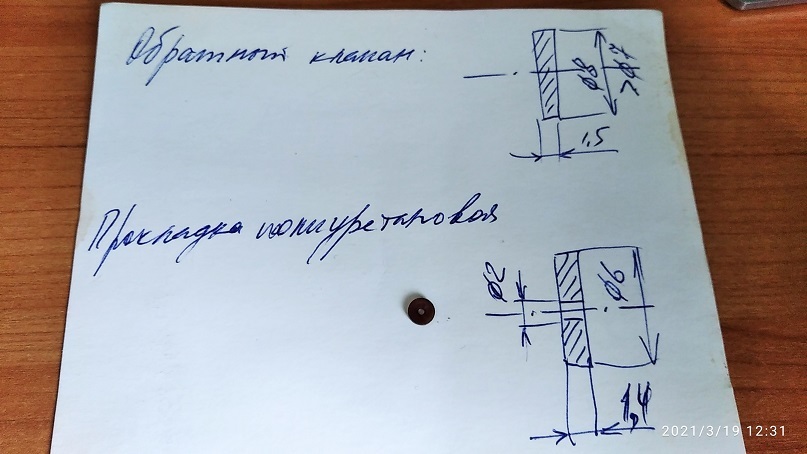 Обратный клапан:
⌀8
>⌀7
1,5
Прокладка полиуретановая
⌀2
⌀6
1,4
2021/3/19 12:31